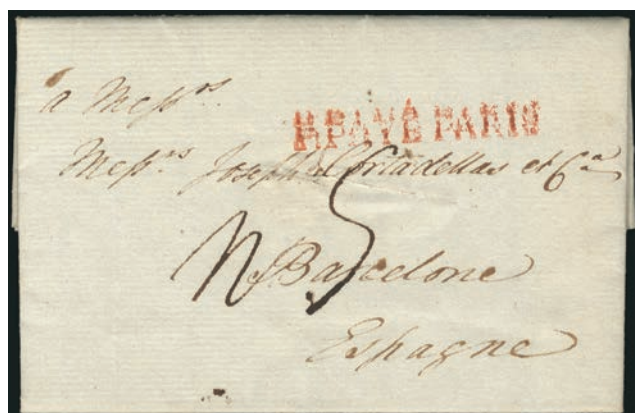 a Mess.rs
P.PAYÉ PARIS
Mess.rs Joseph Cortadellas et C.ia
n 5
Barcelone
Espagne